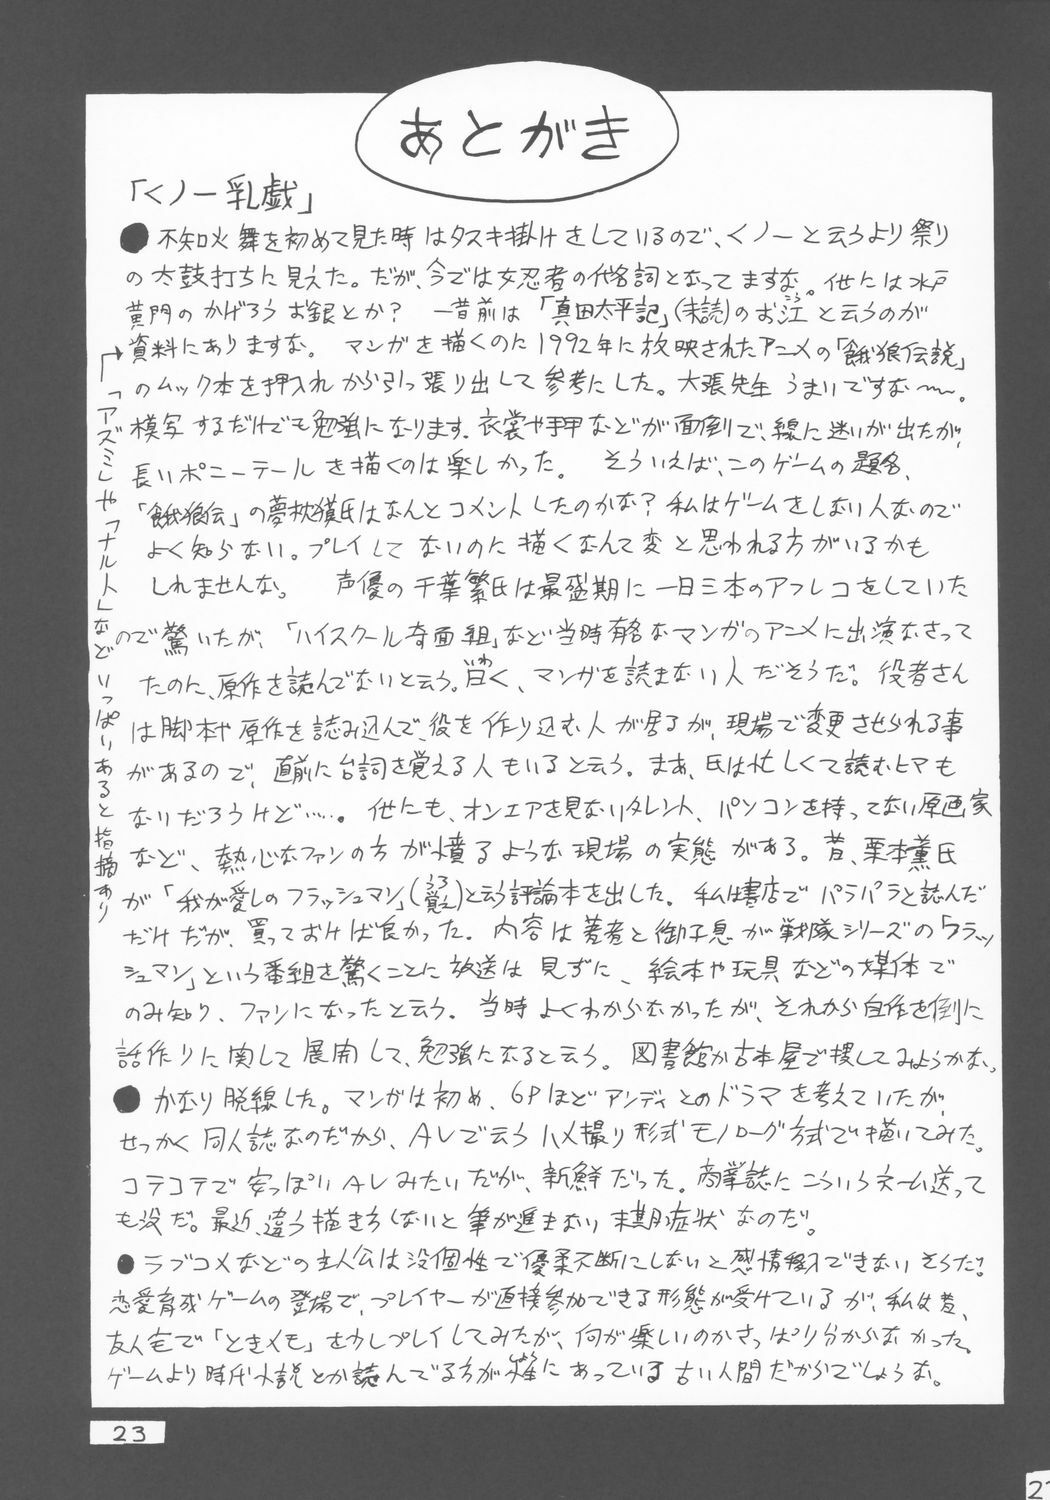 あとがき
「くノ一乳戯」
●不知火舞を初めて見た時はタスキ掛けをしているので、くノ一と云うより祭り
の太鼓打ちに見えた。だが、今では女忍者の代名詞となってますな。他には水戸
黄門のかげろうお銀とか? 一昔前は「真田太平記」(未読)のお江と云うのが
こう
資料にありますな。 マンガを描くのに1992年に放映されたアニメの「餓狼伝説」
のムック本を押入れから引っ張り出して参考にした。大張先生うまいですな〜〜。
模写するだけでも勉強になります。衣裳や手甲などが面倒で、線に迷いが出たが、
長いポニーテールを描くのは楽しかった。 そういえば、このゲームの題名、
「餓狼伝」の夢枕獏氏はなんとコメントしたのかな?私はゲームをしない人なので
よく知らない。プレイしてないのに描くなんて変と思われる方がいるかも
しれませんな。 声優の千葉繁氏は最盛期に一日三本のアフレコをしていた
ので驚いたが、「ハイスクール奇面組」など当時有名なマンガのアニメに出演なさって
たのに、原作を読んでないと云う。曰く、マンガを読まない人だそうだ。役者さん
いわ
は脚本や原作を読み込んで、役を作り込む人が居るが、現場で変更させられる事
があるので、直前に台詞を覚える人もいると云う。まあ、氏は忙しくて読むヒマも
ないだろうけど……。 他にも、オンエアを見ないタレント、パソコンを持ってない原画家
など、熱心なファンの方が憤るような現場の実態がある。昔、栗本薫氏
が「我が愛しのフラッシュマン」(覚え)と云う評論本を出した。私は書店でパラパラと読んだ
うろ
だけだが、買っておけば良かった。内容は著者と御子息が戦隊シリーズの「フラッ
シュマン」という番組を驚くことに放送は見ずに、絵本や玩具などの媒体で
のみ知り、ファンになったと云う。当時よくわからなかったが、それから自作を例に
話作りに関して展開して、勉強になると云う。図書館か古本屋で捜してみようかな。
●かなり脱線した。マンガは初め、6Pほどアンディとのドラマを考えていたが、
せっかく同人誌なのだから、AVで云うハメ撮り形式モノローグ方式で描いてみた。
コテコテで安っぽいAVみたいだが、新鮮だった。商業誌にこういうネーム送って
も没だ。最近、違う描き方しないと筆が進まない末期症状なのだ。
●ラブコメなどの主人公は没個性で優柔不断にしないと感情移入できないそうだ。
恋愛育成ゲームの登場で、プレイヤーが直接参加できる形態が受けているが、私は昔、
友人宅で「ときメモ」を少しプレイしてみたが、何が楽しいのかさっぱり分からなかった。
ゲームより時代小説とか読んでる方が性にあっている古い人間だからでしょうな。
しょう
「アズミ」や「ナルト」などいっぱいあると指摘あり
23